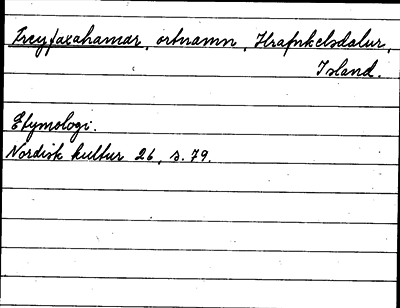 Freyfaxahamar, ortnamn, Hrafnkelsdalur,
Island.
Etymologi.
Nordisk kultur 26, s. 79.